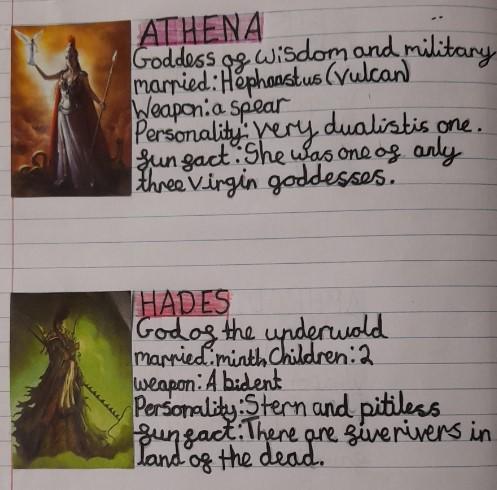 ATHENA
Goddess of wisdom and military
married: Hephaastus (Vulcan)
Weapon: a spear
Personality: very dualistis one.
fun fact: She was one of only
three virgin goddesses.
HADES
God of the underwold
married: minth, Children: 2
weapon: A bident
Personality: Stern and pitiless
fun fact: There are five rivers in
land of the dead.